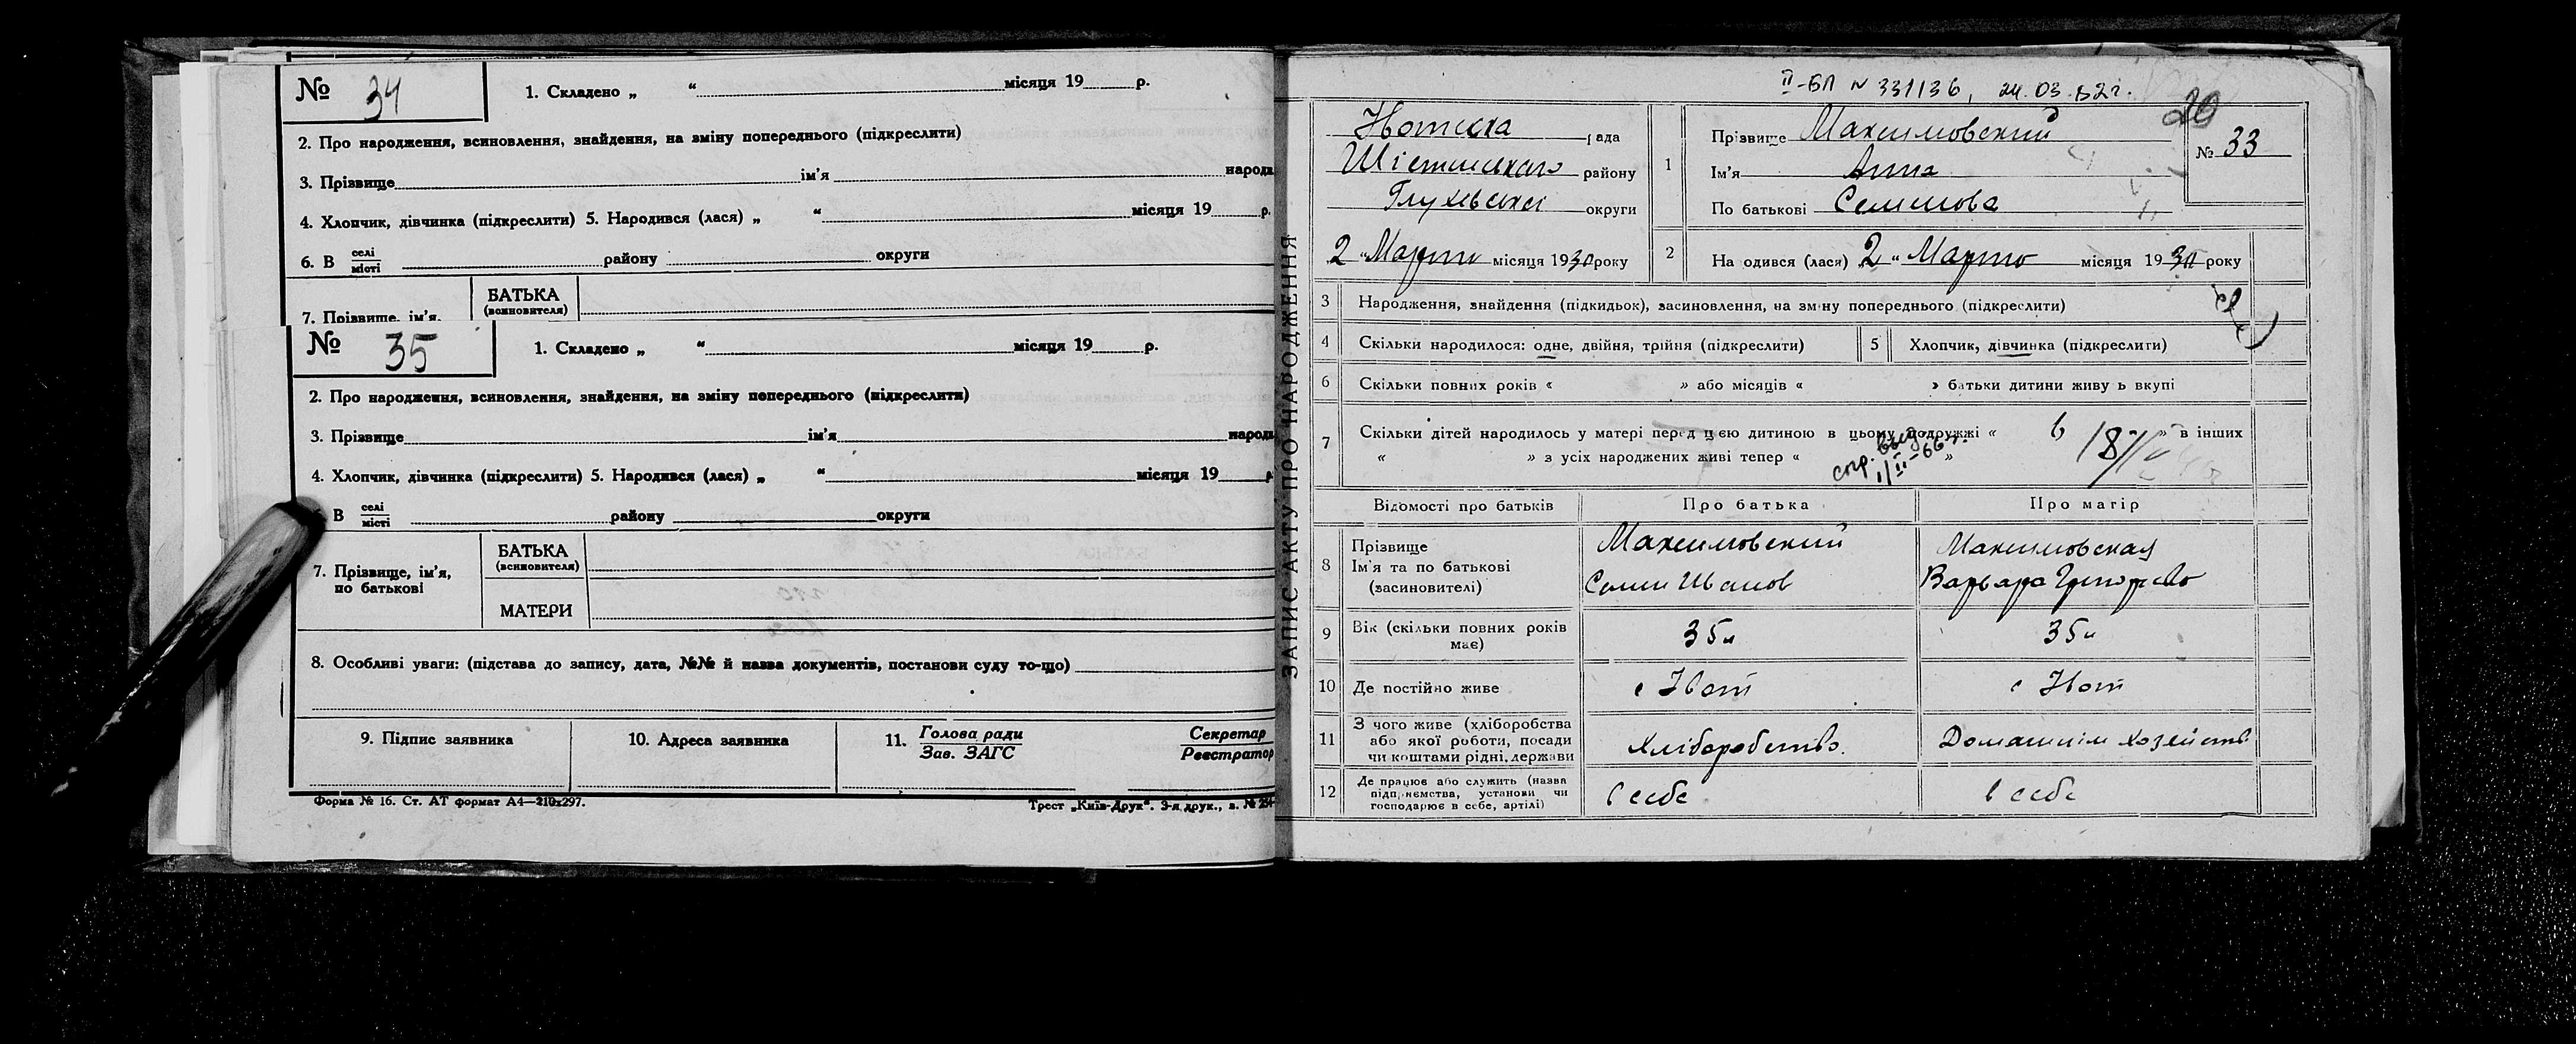 № 34
1. Складено „ “ місяця 19 р.
2. Про народження, всиновлення, знайдення, на зміну попереднього (підкреслити)
3. Прізвище ім’я народи
4. Хлопчик, дівчинка (підкреслити) 5. Народився (лася) „ “ місяця 19 р.
6. В селі/місті району округи
7. Прізвище, ім’я, БАТЬКА (всиновителя)
№ 35
1. Складено „ “ місяця 19 р.
2. Про народження, всиновлення, знайдення, на зміну попереднього (підкреслити)
3. Прізвище ім’я народи
4. Хлопчик, дівчинка (підкреслити) 5. Народився (лася) „ “ місяця 19
В селі/місті району округи
7. Прізвище, ім’я, по батькові
БАТЬКА (всиновителя)
МАТЕРИ
8. Особливі уваги: (підстава до запису, дата, №№ й назва документів, постанови суду то-що)
9. Підпис заявника 10. Адреса заявника 11. Голова ради / Зав. ЗАГС Секретар / Реєстратор
Форма № 16. Ст. АТ формат А4—210х297. Трест „Київ-Друк“. 3-я друк., з. № 254
ЗАПИС АКТУ ПРО НАРОДЖЕННЯ
II-БП № 331136, 24.03.82г.
20
рада
району
Глухівської округи
2 “ Марта місяця 1930 року
1 Прізвище Максимовский
Ім’я Анна
По батькові Семенова
№ 33
2 Народився (лася) 2 “ Марта місяця 1930 року
3 Народження, знайдення (підкидьок), засиновлення, на зміну попереднього (підкреслити)
4 Скільки народилося: одне, двійня, трійня (підкреслити) 5 Хлопчик, дівчинка (підкреслити)
6 Скільки повних років « » або місяців « » батьки дитини живуть вкупі
7 Скільки дітей народилось у матері перед цією дитиною в цьому подружжі « 6 » в інших
« » з усіх народжених живі тепер « »
Відомості про батьків Про батька Про матір
8 Прізвище Ім’я та по батькові (засиновителі)
Максимовский Максимовская
Семен Иванов Варвара Григорьев
9 Вік (скільки повних років має) 35 л 35 л
10 Де постійно живе с Івот с Івот
11 З чого живе (хліборобства або якої роботи, посади чи коштами рідні, держави
Хліборобство. Домашнім хозяйств
12 Де працює або служить (назва підприємства, установи чи господарює в себе, артілі)
в себе в себе